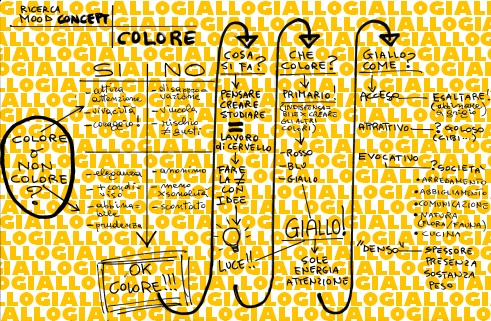 RICERCA
MOOD CONCEPT
COLORE
SI NO
- altra
attenzione
- vivacità
- coraggio!
- disappro=
vazione
- vincola
- rischio
≠ gusti
COLORE
o
NON
COLORE
?
- eleganza
- + condi=
viso
- abbina=
bile
- prudenza
- anonimo
- meno
xsonalità
- scontato
OK
COLORE!!!
COSA
SI FA?
PENSARE
CREARE
STUDIARE
=
LAVORO
di CERVELLO
FARE
LA
CON
IDEE
LUCE!!
CHE
COLORE?
PRIMARIO!
(INDISPENSA=
BILE X CREARE
GLI ALTRI
COLORI)
- ROSSO
- BLU
- GIALLO
GIALLO!
SOLE
ENERGIA
ATTENZIONE
GIALLO?
COME?
ACCESO
ESALTARE!
(abbinato
a grigio)
ATTRATTIVO
? GOLOSO
(CIBI..)
EVOCATIVO
?SOCIETÀ
• ARREDAMENTO
• ABBIGLIAMENTO
• COMUNICAZIONE
• NATURA
(FLORA/FAUNA)
• CUCINA
"DENSO"
SPESSORE
PRESENZA
SOSTANZA
PESO